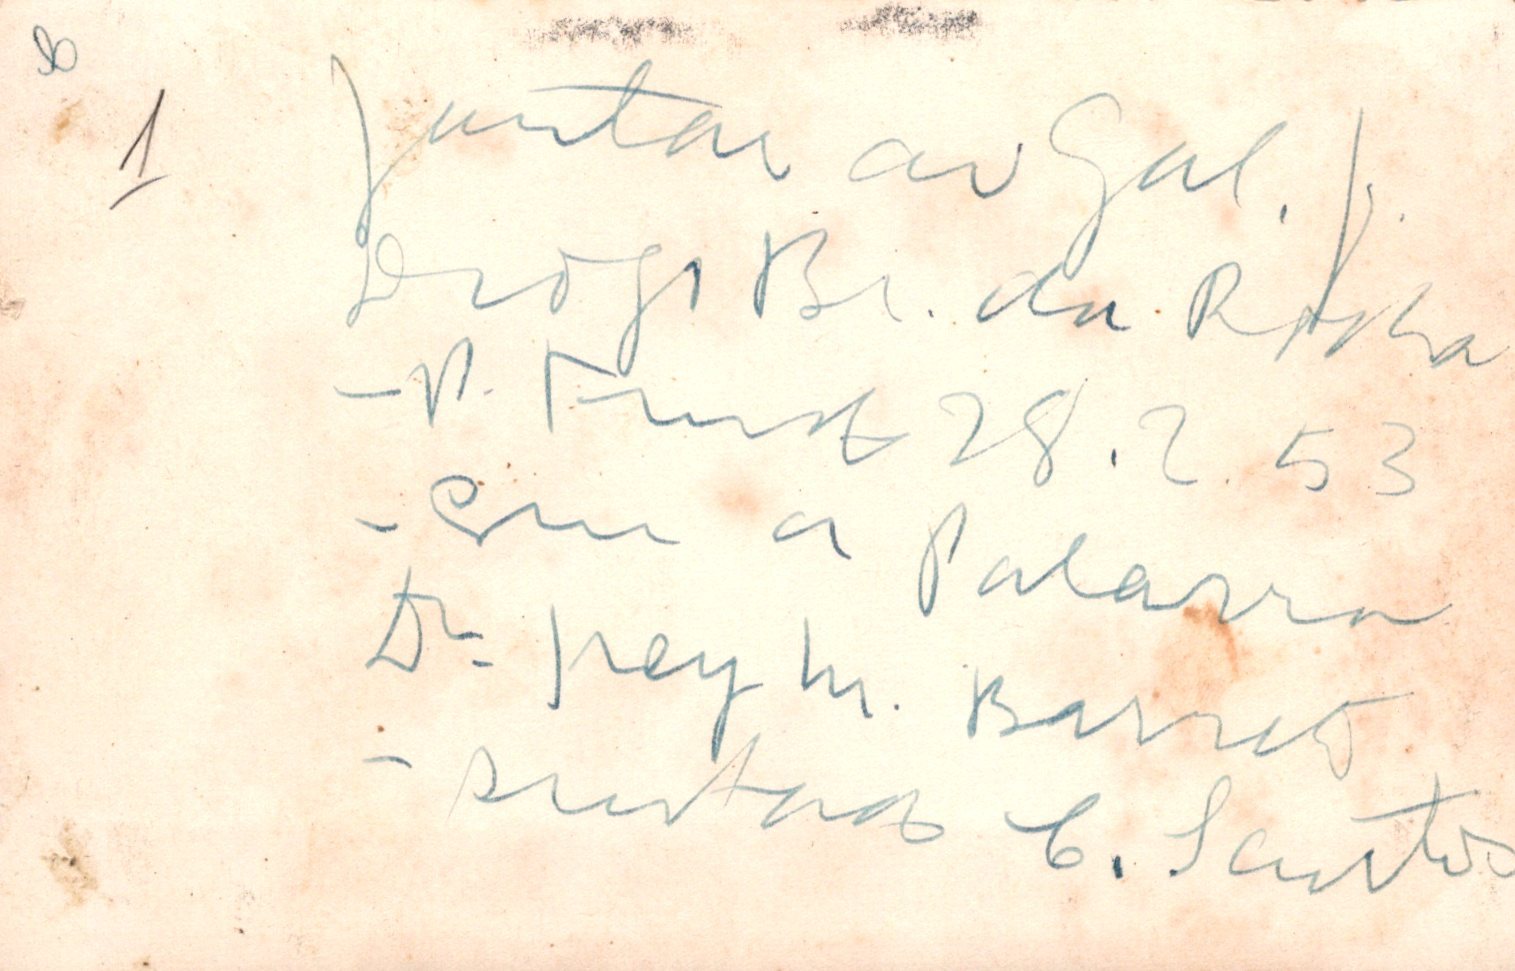 90
1
Jantar ao Gal. J.
Diogo Br. da Rocha
- P. Fundo 28.2.53
- Com a Palavra
Dr. Frey M. Barreto
- sentado C. Santos